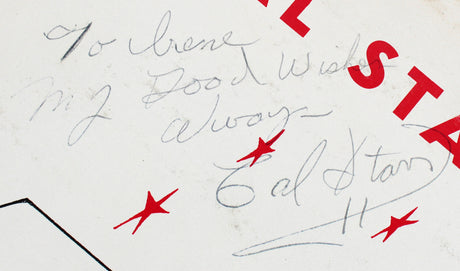 AL STA
To Irene
My Good Wishes
Always
Cal Starr